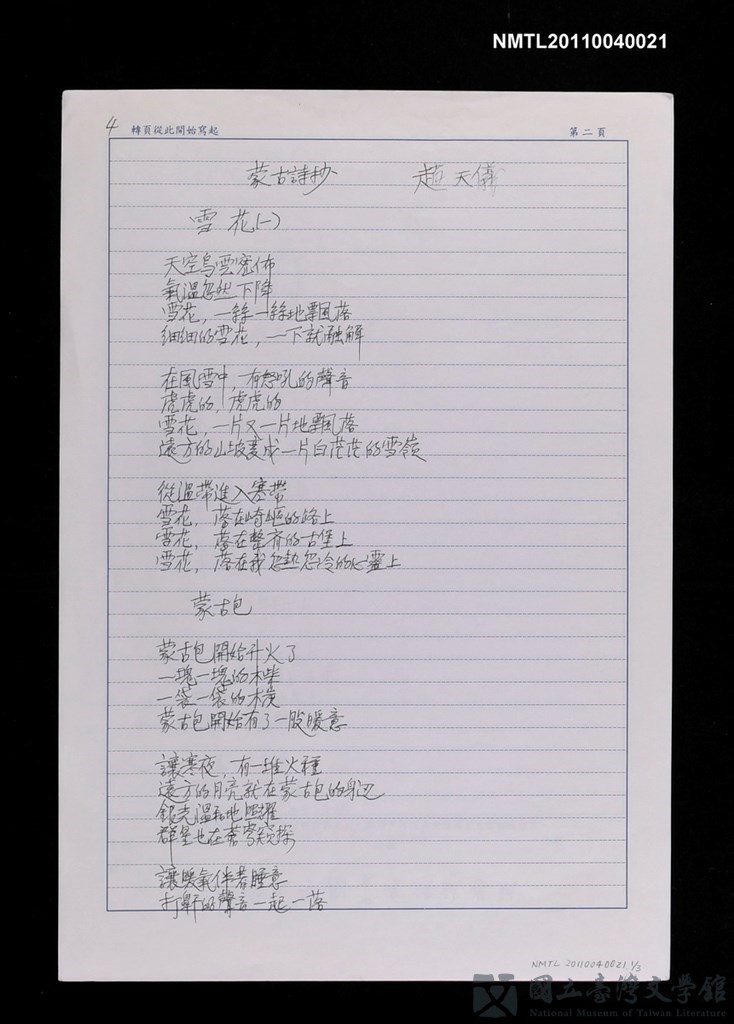 NMTL20110040021
4 轉頁從此開始寫起 第二頁
蒙古詩抄 趙天儀
雪花(一)
天空烏雲密佈
氣溫忽然下降
雪花，一絲一絲地飄落
細細的雪花，一下就融解
在風雪中，有怒吼的聲音
虎虎的，虎虎的
雪花，一片又一片地飄落
遠方的山坡變成一片白茫茫的雪嶺
從溫帶進入寒帶
雪花，落在崎嶇的路上
雪花，落在整齐的古堡上
雪花，落在我忽熱忽冷的心靈上
蒙古包
蒙古包開始升火了
一塊一塊的木柴
一袋一袋的木炭
蒙古包開始有了一股暖意
讓寒夜，有一堆火種
遠方的月亮就在蒙古包的身边
銀亮溫和地照耀
群星也在蒼穹窺探
讓暖氣伴著睡意
打鼾的聲音一起一落
NMTL 20110040021 1/3
國立臺灣文學館
National Museum of Taiwan Literature